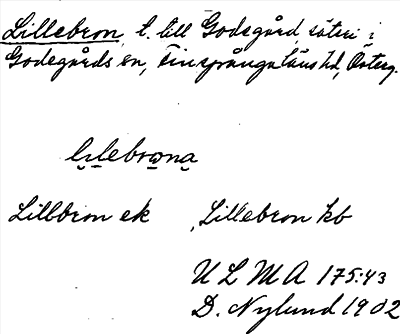 Lillebron, t. till Godegård, säteri i
Godegårds sn, Finspånga läns hd, Österg.
lilebrona
Lillbron ek Lillebron kb
ULMA 175:43
D. Nylund 1902